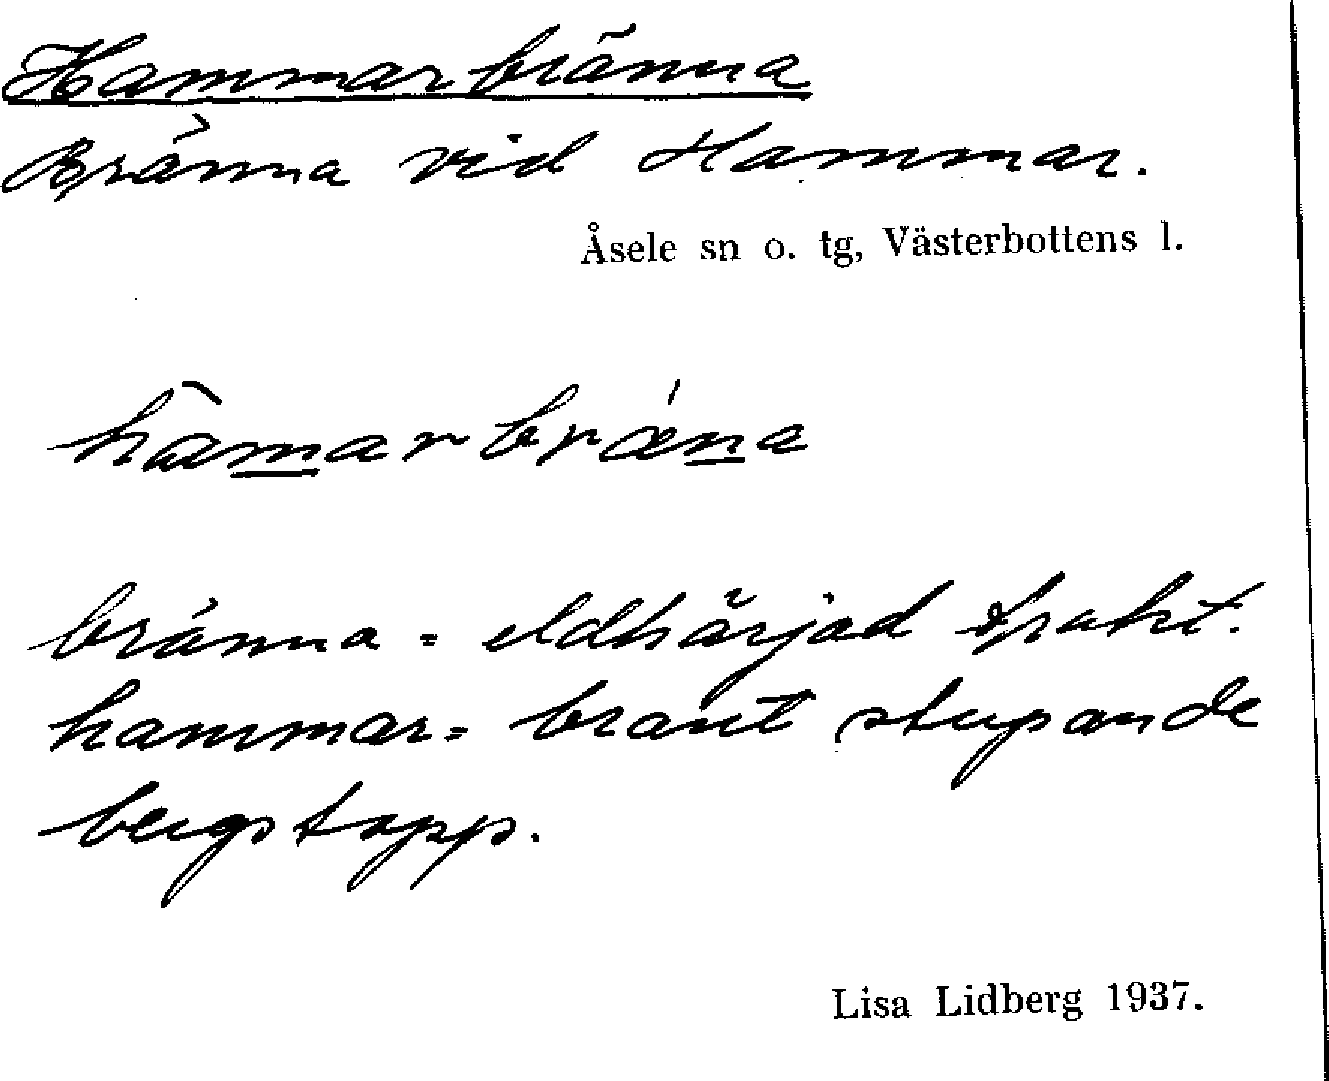 Hammarbränna
Bränna vid Hammar.
Åsele sn o. tg, Västerbottens l.
hàmarbræ´na
bränna = eldhärjad trakt.
hammar = brant stupande
bergstopp.
Lisa Lidberg 1937.